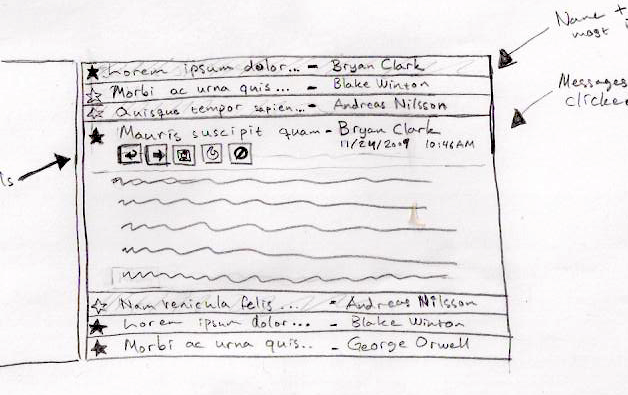 Name +
most i
Lorem ipsum dolor... - Bryan Clark
Morbi ac urna quis... - Blake Winton
Quisque tempor sapien... - Andreas Nilsson
Messages
clicke
Mauris suscipit quam - Bryan Clark
11/24/2009 10:46AM
ls
Nam venicula felis... - Andreas Nilsson
Lorem ipsum dolor... - Blake Winton
Morbi ac urna quis.. - George Orwell